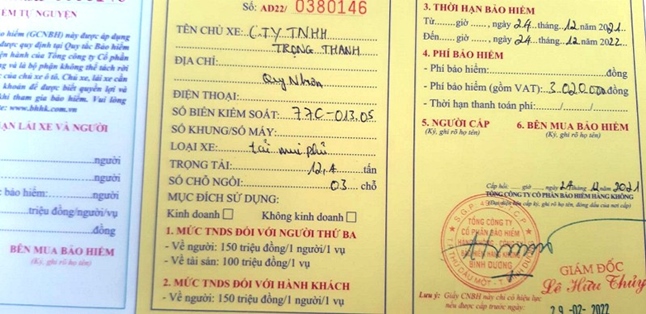 ỂM TỰ NGUYỆN
o hiểm (GCNBH) này được áp dụng
được quy định tại Quy tắc Bảo hiểm
ện hành của Tổng công ty Cổ phần
g và là bộ phận không thể tách rời
c của chủ xe ô tô. Chủ xe, lái xe cần
khoản để được biết quyền lợi và
khi tham gia bảo hiểm. Vui lòng
site: www.bhhk.com.vn
ẠN LÁI XE VÀ NGƯỜI
người
người
bảo hiểm: người
triệu đồng/người/vụ
đồng
BÊN MUA BẢO HIỂM
Số: AD22/ 0380146
TÊN CHỦ XE: C.TY TNHH
TRỌNG THANH
ĐỊA CHỈ:
Quy Nhơn
ĐIỆN THOẠI:
SỐ BIỂN KIỂM SOÁT: 77C-013.05
SỐ KHUNG/SỐ MÁY:
LOẠI XE: tải mui phủ
TRỌNG TẢI: tấn
SỐ CHỖ NGỒI: 03 chỗ
MỤC ĐÍCH SỬ DỤNG:
Kinh doanh Không kinh doanh
1. MỨC TNDS ĐỐI VỚI NGƯỜI THỨ BA
- Về người: 150 triệu đồng/1 người/1 vụ
- Về tài sản: 100 triệu đồng/1 vụ
2. MỨC TNDS ĐỐI VỚI HÀNH KHÁCH
- Về người: 150 triệu đồng/1 người/1 vụ
3. THỜI HẠN BẢO HIỂM
Từ giờ, ngày 24 tháng 12 năm 2021
Đến giờ, ngày 24 tháng 12 năm 2022
4. PHÍ BẢO HIỂM
- Phí bảo hiểm: đồng
- Phí bảo hiểm (gồm VAT): 3.020.000 đồng
- Thời hạn thanh toán phí: / /
5. NGƯỜI CẤP 6. BÊN MUA BẢO HIỂM
(Ký, ghi rõ họ tên) (Ký, ghi rõ họ tên)
Cấp hồi: giờ ngày 24 12 2021
TỔNG CÔNG TY CỔ PHẦN BẢO HIỂM HÀNG KHÔNG
TỔNG CÔNG TY
CỔ PHẦN BẢO HIỂM
BÌNH DƯƠNG
GIÁM ĐỐC
Lê Hữu Thủy
Lưu ý: Giấy CNBH này chỉ có hiệu lực
nếu được cấp trước ngày: 29-02-2022